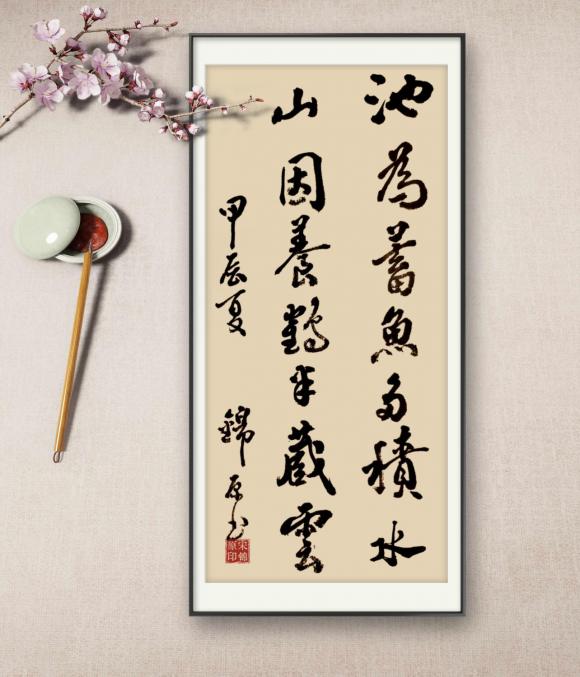 池為蓄魚多積水
山因養鶴半藏雲
甲辰夏
錦原书
宋錦
原印